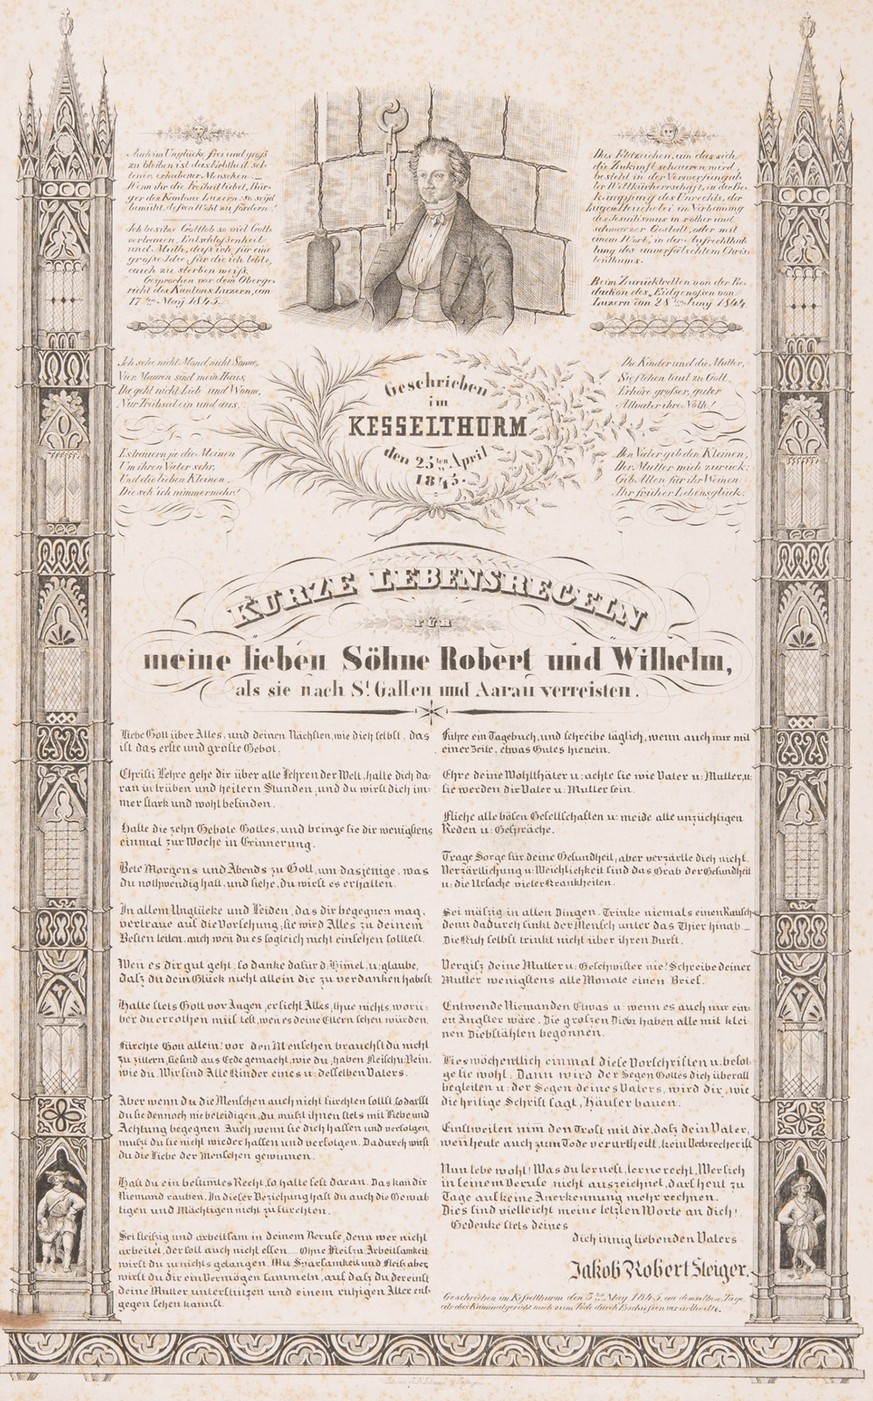 Auch im Unglücke frei und groß
zu bleiben ist das Erbtheil sel-
tener, erhabener Menschen. _
Wenn ihr die Freiheit liebet, Bür-
ger des Kantons Luzern: so seyd
bemüht, dessen Wohl zu fördern!
Ich besitze Gottlob so viel Gott-
vertrauen, Entschlossenheit
und Muth, daß ich für eine
große Idee, für die ich lebte,
auch zu sterben weiß.
Gesprochen vor dem Oberge-
richt des Kantons Luzern, am
17ten May 1845.
Das Feldzeichen, um das sich
die Zukunft schaaren wird,
besteht in der Verwerfung al-
ler Willkürherrschaft, in der Be-
kämpfung des Unrechts, der
Lüge u. Heuchelei, in Verbannung
des Jesuitismus in rother und
schwarzer Gestalt, oder mit
einem Wort, in der Aufrechthal-
tung des unverfälschten Chris-
tenthums.
Beim Zurücktreten von der Re-
daktion des Eidgenoßen von
Luzern von 28ten Juny 1844.
Ich sehe nicht Mond, nicht Sonne,
Vier Mauren sind mein Haus,
Da geht nicht Lieb und Wonne,
Nur Trübsal ein und aus.
Es trauern ja die Meinen
Um ihren Vater sehr,
Und die lieben Kleinen,
Die seh ich nimmermehr!
Geschrieben
im
KESSELTHURM
den 25ten April
1845.
Die Kinder und die Mutter,
Sie flehen laut zu Gott,
Erhöre großer, guter
Allvater ihre Noth!
Den Vater gib den Kleinen,
Der Mutter mich zurück;
Gib Allen für ihr Weinen
Ihr früher Lebensglück.
KURZE LEBENSREGELN
FÜR
meine lieben Söhne Robert und Wilhelm,
als sie nach St. Gallen und Aarau verreisten.
Liebe Gott über Alles, und deinen Nächsten, wie dich selbst, das
ist das erste und größte Gebot.
Christi Lehre gehe dir über alle Lehren der Welt, halte dich da-
ran in trüben und heitern Stunden, und du wirst dich im-
mer stark und wohl befinden.
Halte die zehn Gebote Gottes, und bringe sie dir wenigstens
einmal zur Woche in Erinnerung.
Bete Morgens und Abends zu Gott, um dasjenige, was
du nothwendig hast, und siehe, du wirst es erhalten.
In allem Unglücke und Leiden, das dir begegnen mag,
vertraue auf die Vorsehung, sie wird Alles zu deinem
Besten leiten, auch wen du es sogleich nicht einsehen solltest.
Wen es dir gut geht, so danke dafür d. Himel, u. glaube,
daß du dein Glück nicht allein dir zu verdanken habest.
Halte stets Gott vor Augen, er sieht Alles, thue nichts, worü-
ber du erröthen müßtest, wen es deine Eltern sehen würden.
Fürchte Gott allein! vor den Menschen brauchst du nicht
zu zittern, sie sind aus Erde gemacht, wie du, haben Fleisch u. Bein,
wie du. Wir sind Alle Kinder eines u. desselben Vaters.
Aber wenn du die Menschen auch nicht fürchten sollst, so darfst
du sie dennoch nie beleidigen, du mußt ihnen stets mit Liebe und
Achtung begegnen. Auch wenn sie dich hassen und verfolgen,
mußt du sie nicht wieder hassen und verfolgen. Dadurch wirst
du die Liebe der Menschen gewinnen.
Hast du ein bestimtes Recht, so halte fest daran. Das kan dir
Niemand rauben. In dieser Beziehung hast du auch die Gewal-
tigen und Mächtigen nicht zu fürchten.
Sei fleißig und arbeitsam in deinem Berufe, denn wer nicht
arbeitet, der soll auch nicht essen. _ Ohne Fleiß u. Arbeitsamkeit
wirst du zu nichts gelangen. Mit Sparsamkeit und Fleiß aber
wirst du dir ein Vermögen sammeln, auf daß du dereinst
deine Mutter unterstützen und einem ruhigen Alter ent-
gegen sehen kannst.
Führe ein Tagebuch, und schreibe täglich, wenn auch nur mit
einer Zeile, etwas Gutes hinein.
Ehre deine Wohlthäter u. achte sie wie Vater u. Mutter, u.
sie werden dir Vater u. Mutter sein.
Fliehe alle bösen Gesellschaften u. meide alle unzüchtigen
Reden u. Gespräche.
Trage Sorge für deine Gesundheit, aber verzärtle dich nicht.
Verzärtlichung u. Weichlichkeit sind das Grab der Gesundheit
u. die Ursache vieler Krankheiten.
Sei mäßig in allen Dingen. Trinke niemals einen Rausch
denn dadurch sinkt der Mensch unter das Thier hinab. _
Die Kuh selbst trinkt nicht über ihren Durst.
Vergiß deine Mutter u. Geschwister nie! Schreibe deiner
Mutter wenigstens alle Monate einen Brief.
Entwende Niemanden Etwas u. wenn es auch nur ein-
en Angster wäre. Die großen Diebe haben alle mit klei-
nen Diebstählen begonnen.
Lies wöchentlich einmal diese Vorschriften u. befol-
ge sie wohl. Dann wird der Segen Gottes dich überall
begleiten u. der Segen deines Vaters, wird dir, wie
die heilige Schrift sagt, Häuser bauen.
Einstweilen nim den Trost mit dir, daß dein Vater,
wen heute auch zum Tode verurtheilt, kein Verbrecher ist.
Nun lebe wohl! Was du lernest, lerne recht. Wer sich
in seinem Berufe nicht auszeichnet, darf heut zu
Tage auf keine Anerkennung mehr rechnen.
Dies sind vielleicht meine letzten Worte an dich!
Gedenke stets deines
dich innig liebenden Vaters
Jakob Robert Steiger.
Geschrieben im Kesselthurm den 3ten May 1845, am demselben Tage,
als das Kriminalgericht mich zum Tode durch Erschießen verurtheilte.